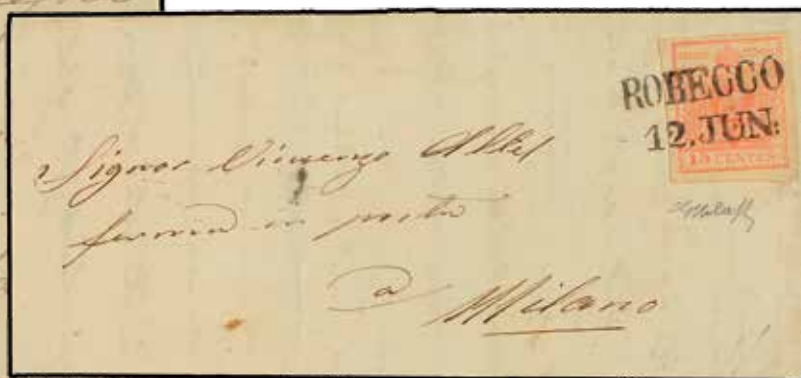 ROBECCO
12. JUN:
15 CENTES
Signor Vincenzo
ferma in posta
a
Milano